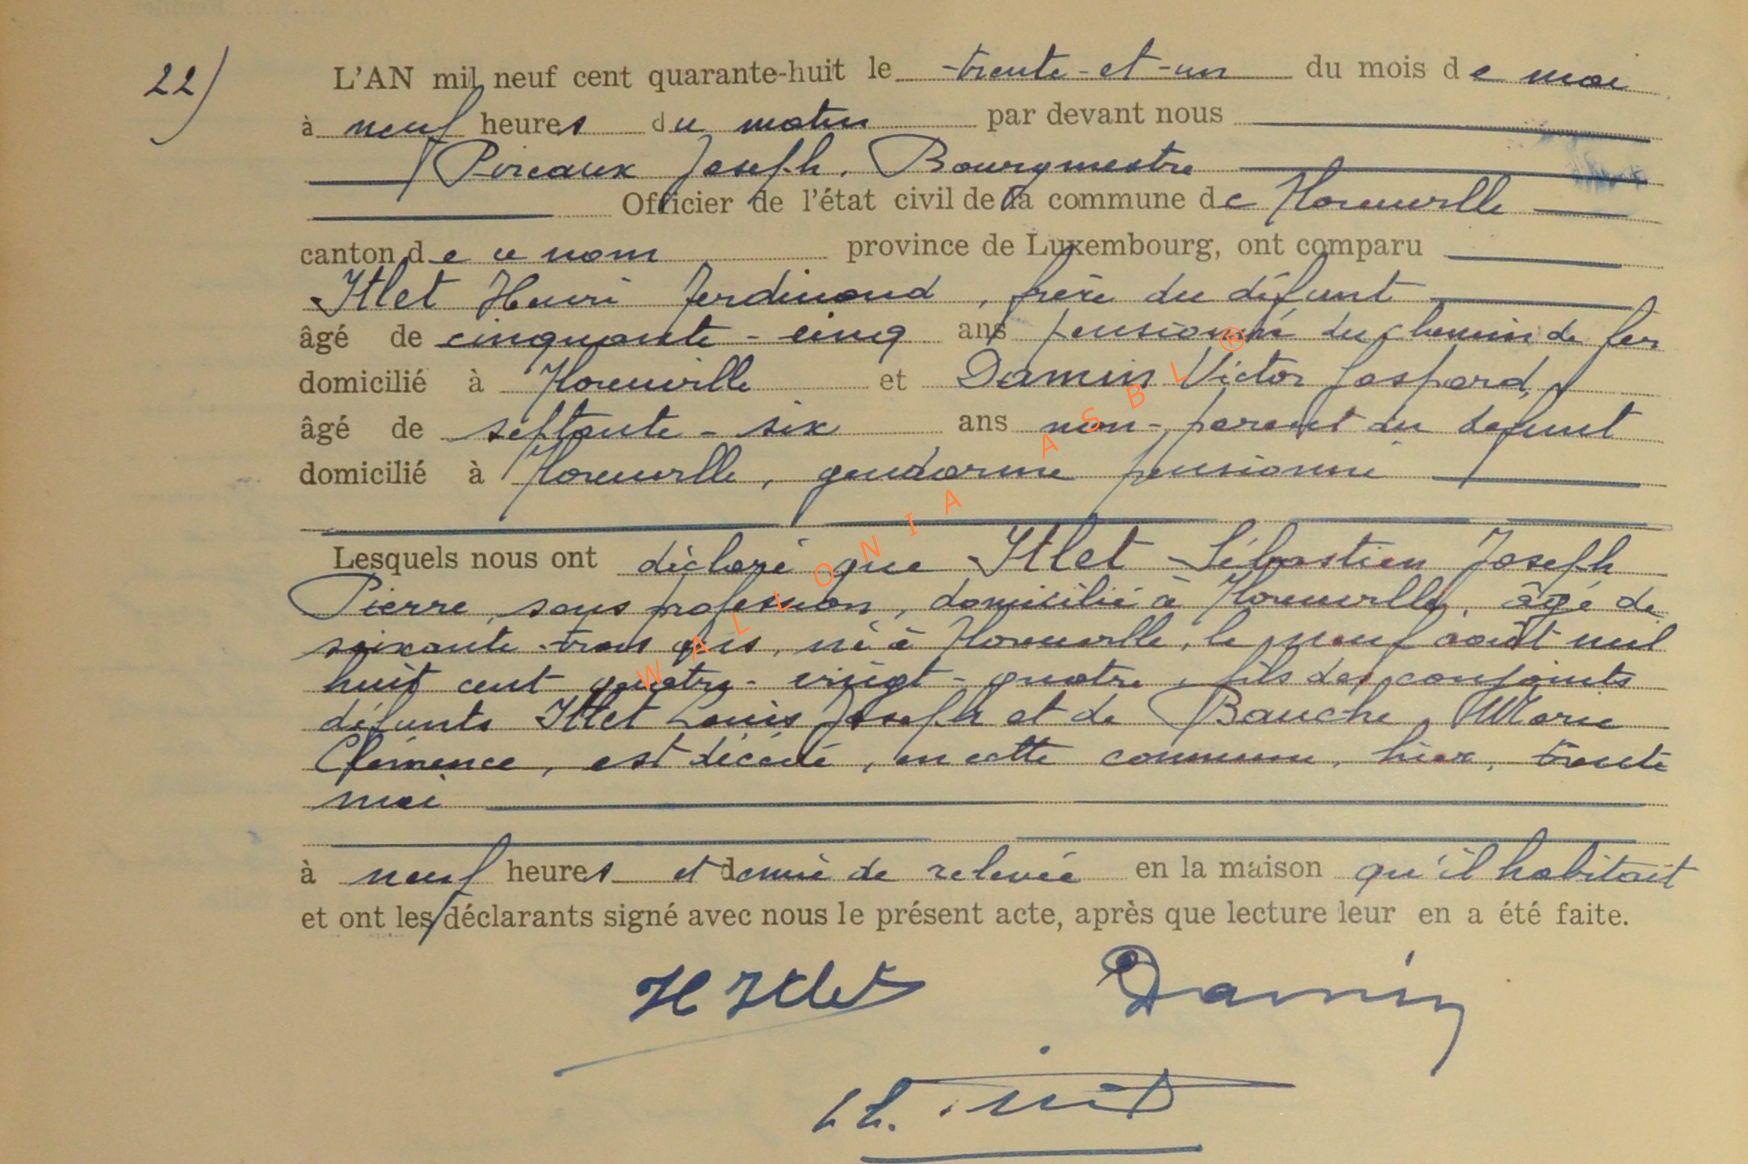 22)
L'AN mil neuf cent quarante-huit le trente-et-un du mois de mai
à neuf heures du matin par devant nous
Pireaux Joseph, Bourgmestre
Officier de l'état civil de la commune de Honville
canton de ce nom province de Luxembourg, ont comparu
Itlet Henri Ferdinand, frère du défunt
âgé de cinquante-cinq ans pensionné du chemin de fer
domicilié à et Damin Victor Gaspard,
âgé de septante-six ans non-parent du défunt
domicilié à gendarme pensionné
Lesquels nous ont déclaré que Itlet Sébastien Joseph
Pierre, sans profession, domicilié à âgé de
soixante-trois ans, né à le neuf août mil
huit cent quatre-vingt-quatre, fils des conjoints
défunts Itlet Louis Joseph et de Bauche, Marie
Clémence, est décédé, en cette commune, hier, trente
mai
à neuf heures et demie de relevée en la maison qu'il habitait
et ont les déclarants signé avec nous le présent acte, après que lecture leur en a été faite.
H Itlet Damin
WALLONIA ASBL ®